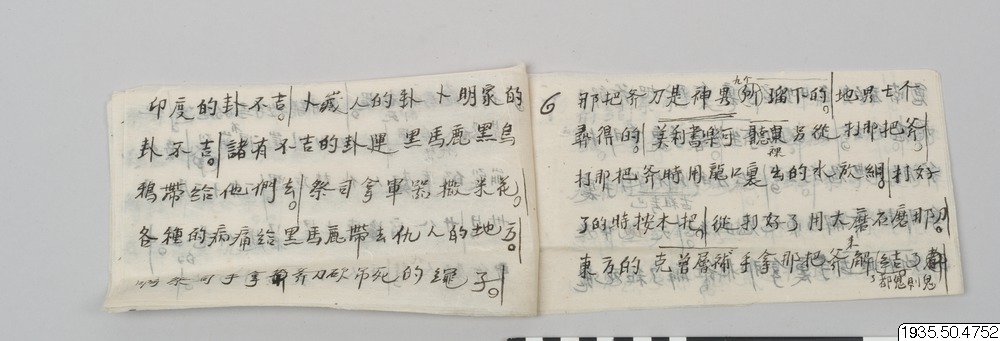 印度的卦不吉。卜藏人的卦卜朋家的
卦不吉。諸有不吉的卦運黑馬鹿黑烏
鴉帶給他們去。祭司拿軍器撒米花。
各種的病痛給黑馬鹿帶去仇人的地方。
祭司手拿斧刀砍吊死的繩子。
6
那把斧刀是神界 九个 所 下的。地界七个
尋得的。美利 可 聽 從打那把斧
打那把斧時用龍口裏出的水放細。打好
了的時按木把。從打好了用大磨石磨那刀
東方的 手拿那把斧 結了
都鬼則鬼
1935.50.4752